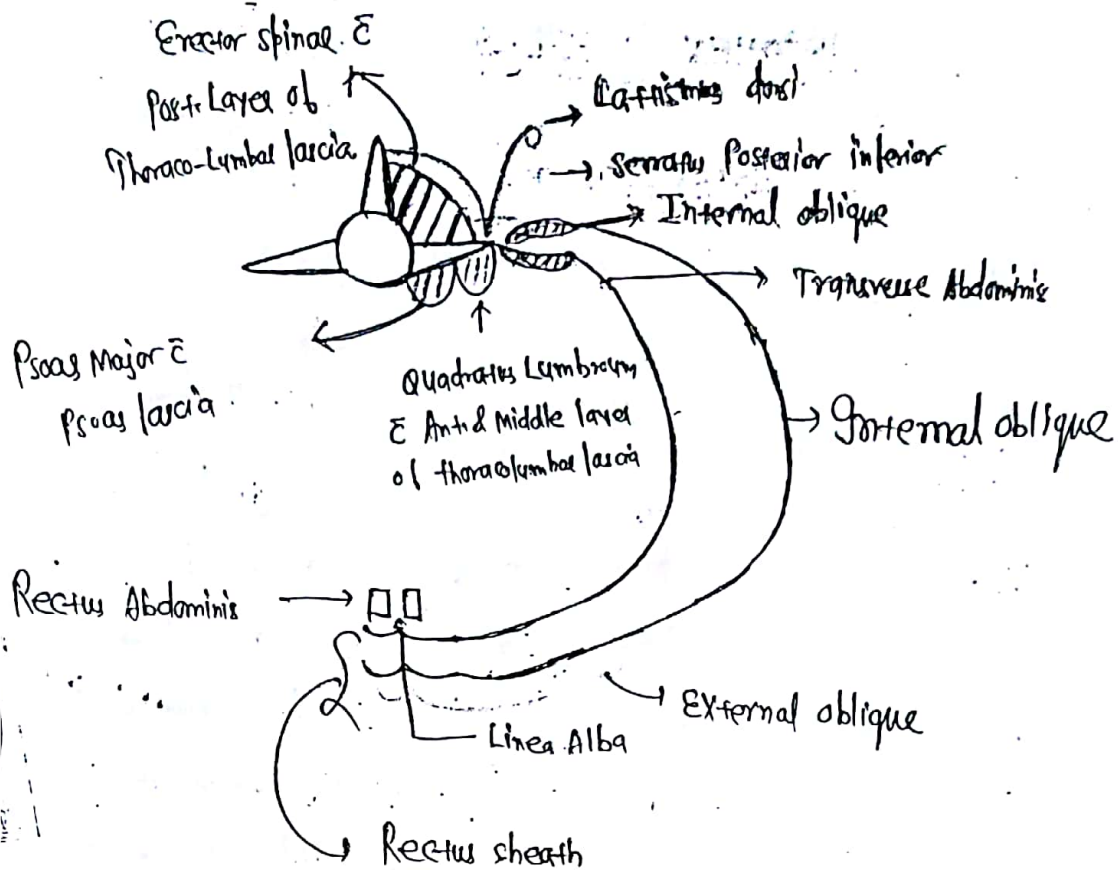 Erector spinae c̄
Postr Layer of
Thoraco-Lumbal fascia
Lattismus dorsi
Serratus Posterior inferior
Internal oblique
Transverse Abdominis
Psoas Major c̄
Psoas fascia
Quadratus Lumbroum
c̄ Antr & Middle layer
of thoracolumbal fascia
Internal oblique
Rectus Abdominis
External oblique
Linea Alba
Rectus sheath